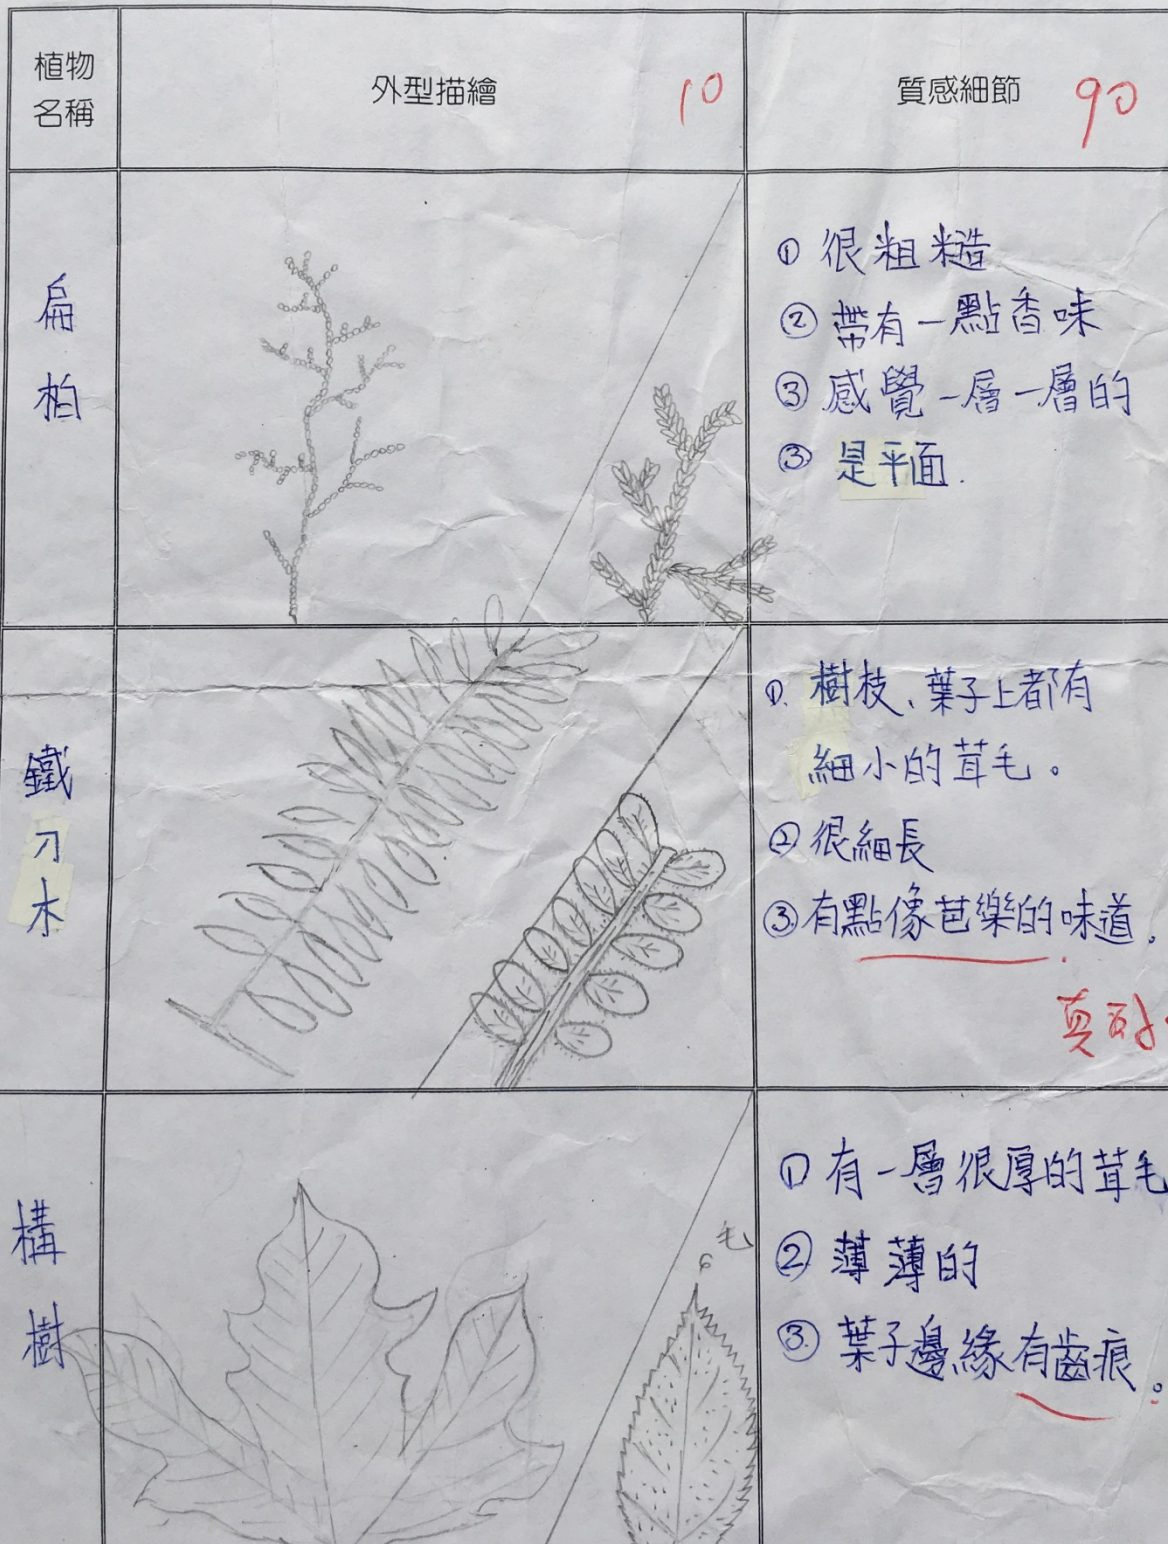 植物
名稱
外型描繪
10
質感細節
90
扁
柏
① 很粗糙
② 帶有一點香味
③ 感覺一層一層的
③ 是平面.
鐵
刀
木
①. 樹枝、葉子上都有
細小的茸毛。
② 很細長
③. 有點像芭樂的味道.
構
樹
毛
① 有一層很厚的茸毛
② 薄薄的
③. 葉子邊緣有齒痕。